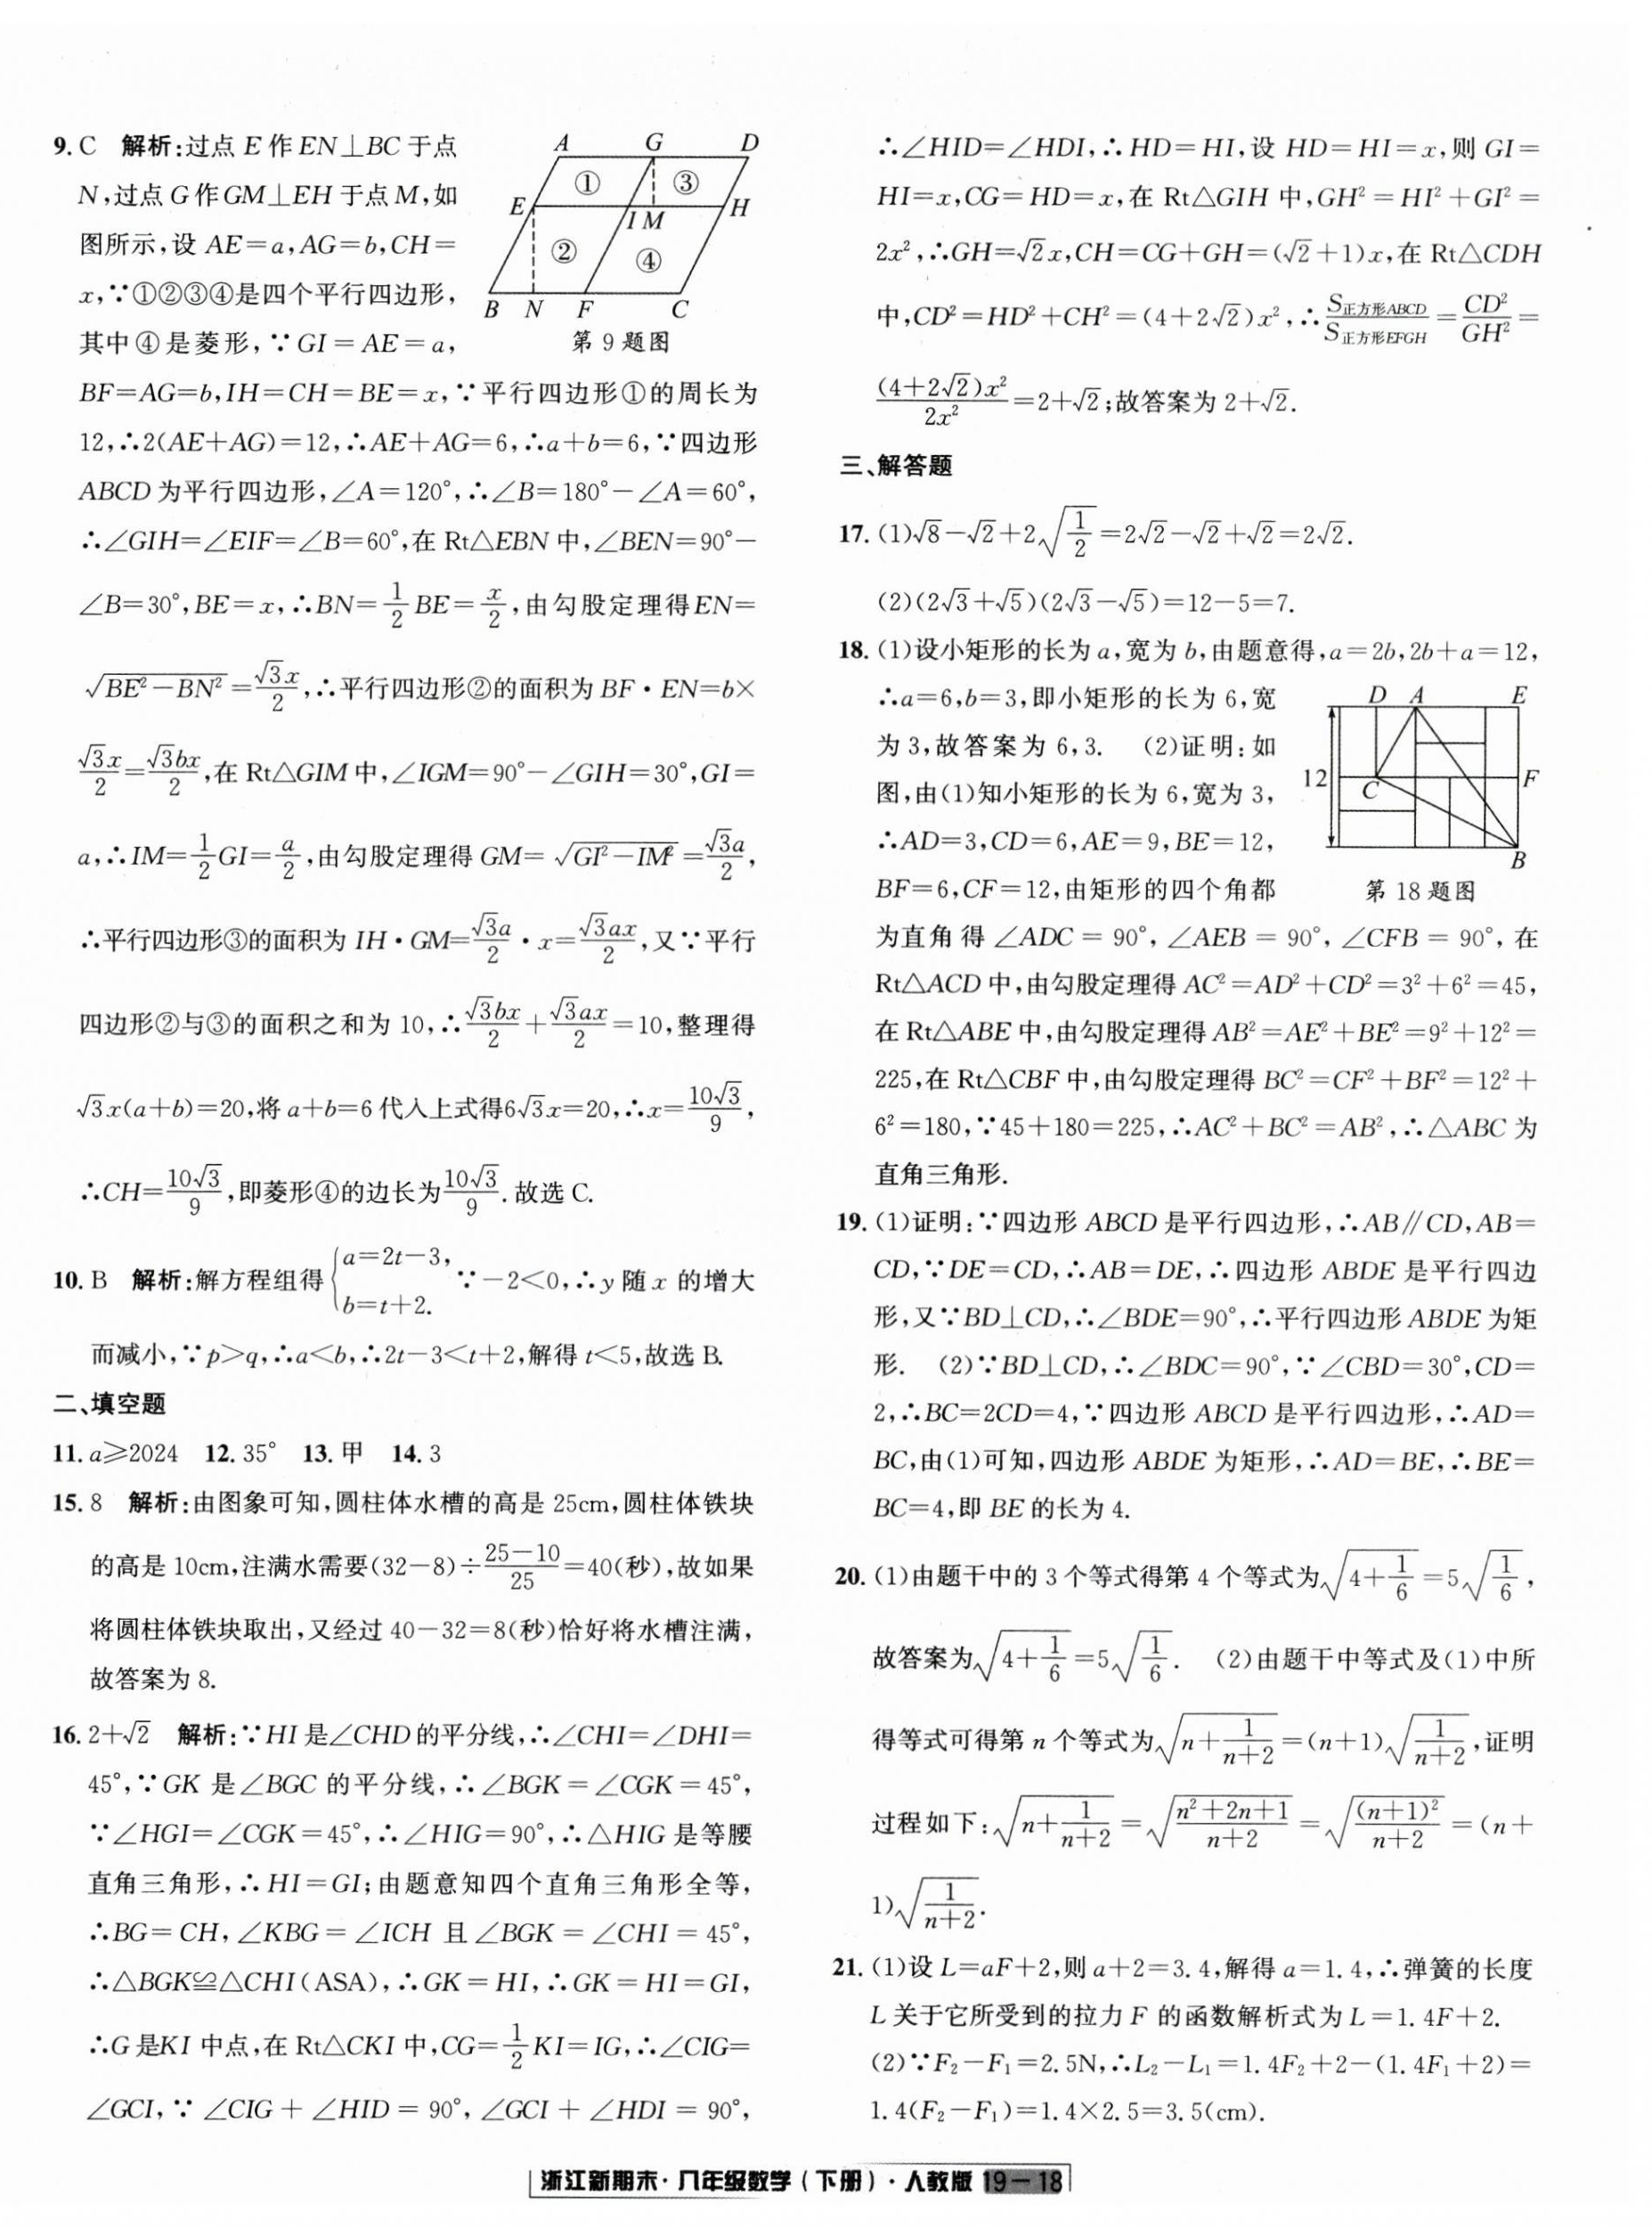 9. C 解析:过点 E 作 EN⊥BC 于点
N,过点 G 作 GM⊥EH 于点 M,如
图所示,设 AE=a,AG=b,CH=
x,∵①②③④是四个平行四边形,
其中④是菱形,∵GI=AE=a,
A G D
① ③
E I M H
② ④
B N F C
第 9 题图
BF=AG=b,IH=CH=BE=x,∵平行四边形①的周长为
12,∴2(AE+AG)=12,∴AE+AG=6,∴a+b=6,∵四边形
ABCD 为平行四边形,∠A=120°,∴∠B=180°-∠A=60°,
∴∠GIH=∠EIF=∠B=60°,在 Rt△EBN 中,∠BEN=90°-
∠B=30°,BE=x,∴BN=1/2 BE=x/2,由勾股定理得EN=
√(BE²-BN²)=√3x/2,∴平行四边形②的面积为 BF·EN=b×
√3x/2=√3bx/2,在 Rt△GIM 中,∠IGM=90°-∠GIH=30°,GI=
a,∴IM=1/2 GI=a/2,由勾股定理得 GM=√(GI²-IM²)=√3a/2,
∴平行四边形③的面积为 IH·GM=√3a/2·x=√3ax/2,又∵平行
四边形②与③的面积之和为 10,∴√3bx/2+√3ax/2=10,整理得
√3x(a+b)=20,将 a+b=6 代入上式得6√3x=20,∴x=10√3/9,
∴CH=10√3/9,即菱形④的边长为10√3/9.故选 C.
10. B 解析:解方程组得{a=2t-3, b=t+2. ∵-2<0,∴y 随 x 的增大
而减小,∵p>q,∴a<b,∴2t-3<t+2,解得 t<5,故选 B.
二、填空题
11. a≥2024 12. 35° 13. 甲 14. 3
15. 8 解析:由图象可知,圆柱体水槽的高是 25cm,圆柱体铁块
的高是 10cm,注满水需要(32-8)÷(25-10)/25=40(秒),故如果
将圆柱体铁块取出,又经过 40-32=8(秒)恰好将水槽注满,
故答案为 8.
16. 2+√2 解析:∵HI 是∠CHD 的平分线,∴∠CHI=∠DHI=
45°,∵GK 是∠BGC 的平分线,∴∠BGK=∠CGK=45°,
∵∠HGI=∠CGK=45°,∴∠HIG=90°,∴△HIG 是等腰
直角三角形,∴HI=GI;由题意知四个直角三角形全等,
∴BG=CH,∠KBG=∠ICH 且∠BGK=∠CHI=45°,
∴△BGK≌△CHI(ASA),∴GK=HI,∴GK=HI=GI,
∴G 是KI 中点,在 Rt△CKI 中,CG=1/2 KI=IG,∴∠CIG=
∠GCI,∵∠CIG+∠HID=90°,∠GCI+∠HDI=90°,
∴∠HID=∠HDI,∴HD=HI,设 HD=HI=x,则 GI=
HI=x,CG=HD=x,在 Rt△GIH 中,GH²=HI²+GI²=
2x²,∴GH=√2x,CH=CG+GH=(√2+1)x,在 Rt△CDH
中,CD²=HD²+CH²=(4+2√2)x²,∴S正方形ABCD/S正方形EFGH=CD²/GH²=
(4+2√2)x²/2x²=2+√2;故答案为 2+√2.
三、解答题
17. (1)√8-√2+2√(1/2)=2√2-√2+√2=2√2.
(2)(2√3+√5)(2√3-√5)=12-5=7.
18. (1)设小矩形的长为 a,宽为 b,由题意得,a=2b,2b+a=12,
∴a=6,b=3,即小矩形的长为 6,宽
为 3,故答案为 6,3. (2)证明:如
图,由(1)知小矩形的长为 6,宽为 3,
∴AD=3,CD=6,AE=9,BE=12,
BF=6,CF=12,由矩形的四个角都
D A E
12 C F
B
第 18 题图
为直角得∠ADC=90°,∠AEB=90°,∠CFB=90°,在
Rt△ACD 中,由勾股定理得 AC²=AD²+CD²=3²+6²=45,
在 Rt△ABE 中,由勾股定理得 AB²=AE²+BE²=9²+12²=
225,在 Rt△CBF 中,由勾股定理得 BC²=CF²+BF²=12²+
6²=180,∵45+180=225,∴AC²+BC²=AB²,∴△ABC 为
直角三角形.
19. (1)证明:∵四边形 ABCD 是平行四边形,∴AB∥CD,AB=
CD,∵DE=CD,∴AB=DE,∴四边形 ABDE 是平行四边
形,又∵BD⊥CD,∴∠BDE=90°,∴平行四边形 ABDE 为矩
形. (2)∵BD⊥CD,∴∠BDC=90°,∵∠CBD=30°,CD=
2,∴BC=2CD=4,∵四边形 ABCD 是平行四边形,∴AD=
BC,由(1)可知,四边形 ABDE 为矩形,∴AD=BE,∴BE=
BC=4,即 BE 的长为 4.
20. (1)由题干中的 3 个等式得第 4 个等式为√(4+1/6)=5√(1/6),
故答案为√(4+1/6)=5√(1/6). (2)由题干中等式及(1)中所
得等式可得第 n 个等式为√(n+1/(n+2))=(n+1)√(1/(n+2)),证明
过程如下:√(n+1/(n+2))=√((n²+2n+1)/(n+2))=√((n+1)²/(n+2))=(n+
1)√(1/(n+2)).
21. (1)设 L=aF+2,则 a+2=3.4,解得 a=1.4,∴弹簧的长度
L 关于它所受到的拉力 F 的函数解析式为 L=1.4F+2.
(2)∵F₂-F₁=2.5N,∴L₂-L₁=1.4F₂+2-(1.4F₁+2)=
1.4(F₂-F₁)=1.4×2.5=3.5(cm).
浙江新期末·八年级数学(下册)·人教版 19-18